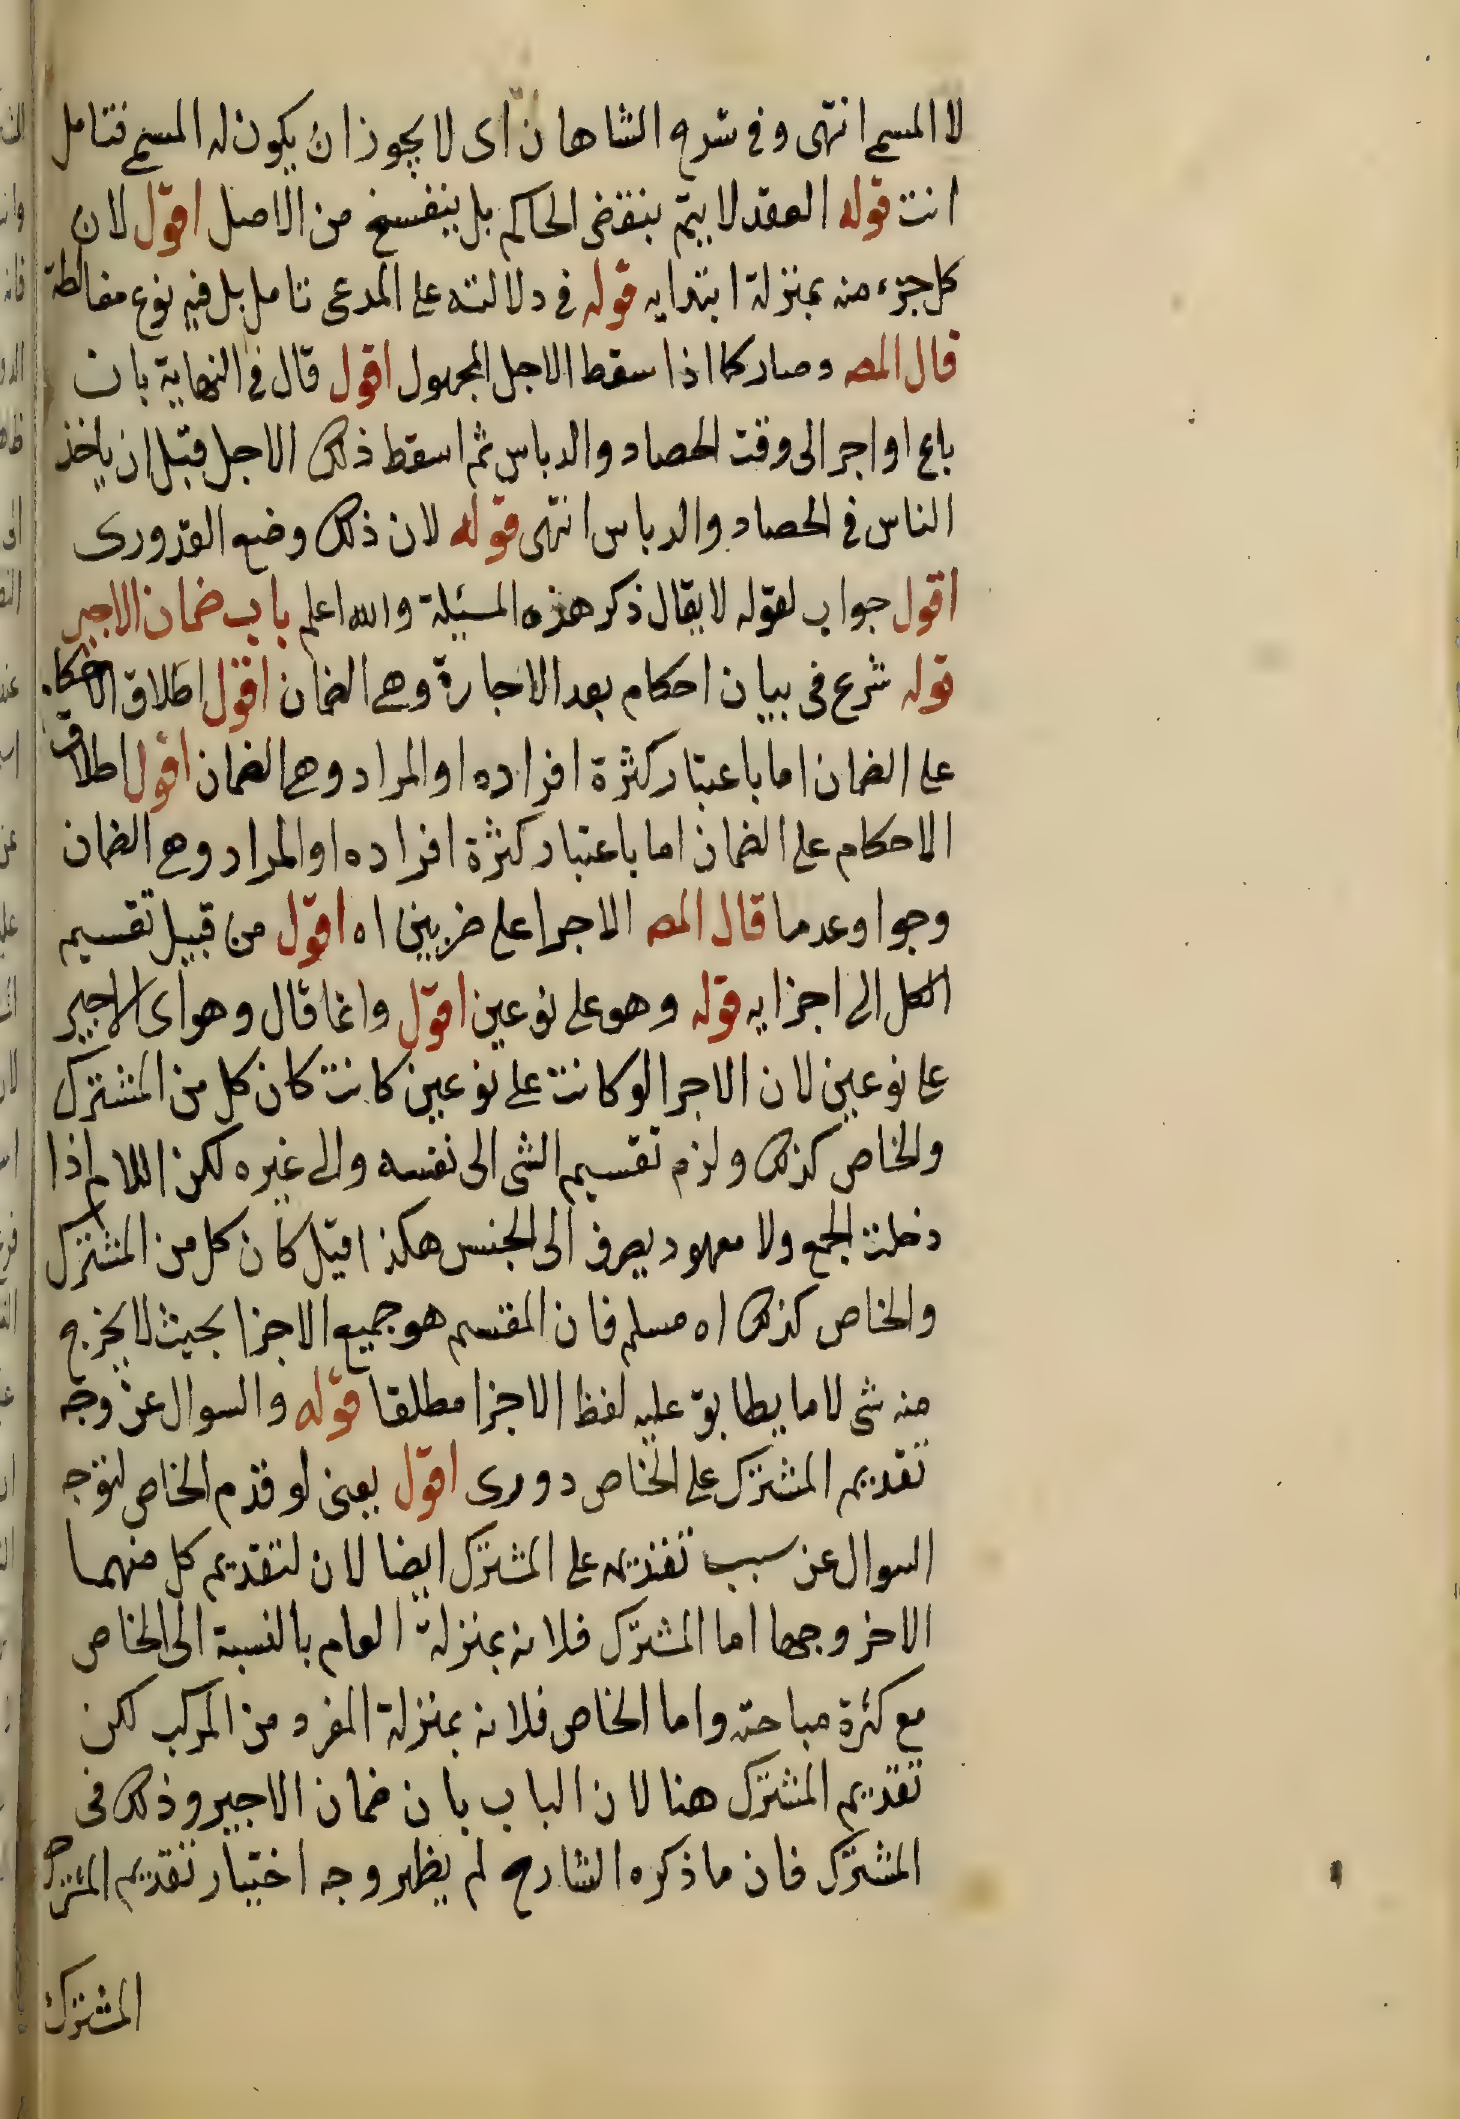 لا المسمى انتهى وفى شرح الشاهان اى لا يجوز ان يكون له المسمى فتامل
انت قوله العقد لا يتم بنقض الحاكم بل ينفسخ من الاصل اقول لان
كل جزء منه بمنزلة ابتدايه قوله فى دلالته على المدعى تامل بل فيه نوع مغالطة
قال المصه وصار كما اذا سقط الاجل المجهول اقول قال فى النهاية بان
باع او اجر الى وقت الحصاد والدياس ثم اسقط ذلك الاجل قبل ان ياخذ
الناس فى الحصاد والدياس انتهى قوله لان ذلك وضع القدورى
اقول جواب لقوله لا يقال ذكر هذه المسئلة والله اعلم باب ضمان الاجير
قوله شرع فى بيان احكام بعد الاجارة وهى الضمان اقول اطلاق الاحكام
على الضمان اما باعتبار كثرة افراده او المراد وهى الضمان اقول اطلاق
الاحكام على الضمان اما باعتبار كثرة افراده او المراد وهى الضمان
وجوا وعدما قال المصه الاجرا على ضربين اه اقول من قبيل تقسيم
الكل الى اجزايه قوله وهو على نوعين اقول وانما قال وهو اى الاجير
على نوعين لان الاجرا لو كانت على نوعين كانت كان كل من المشترك
والخاص كذلك ولزم تقسيم الشى الى نفسه والى غيره لكن اللام اذا
دخلت الجمع ولا معهود يصرف الى الجنس هكذا قيل كان كل من المشترك
والخاص كذلك اه مسلم فان المقسم هو جميع الاجزا بحيث لا يخرج
منه شى لا ما يطابق عليه لفظ الاجزا مطلقا قوله والسوال عن وجه
تقديم المشترك على الخاص دورى اقول يعنى لو قدم الخاص لتوجه
السوال عن سبب تقديمه على المشترك ايضا لان لتقديم كل منهما
الاخر وجها اما المشترك فلانه بمنزلة العام بالنسبة الى الخاص
مع كثرة مباحثه واما الخاص فلانه بمنزلة المفرد من المركب لكن
تقديم المشترك هنا لان الباب بان ضمان الاجير وذلك فى
المشترك فان ما ذكره الشارح لم يظهر وجه اختيار تقديم المشترك
المشترك